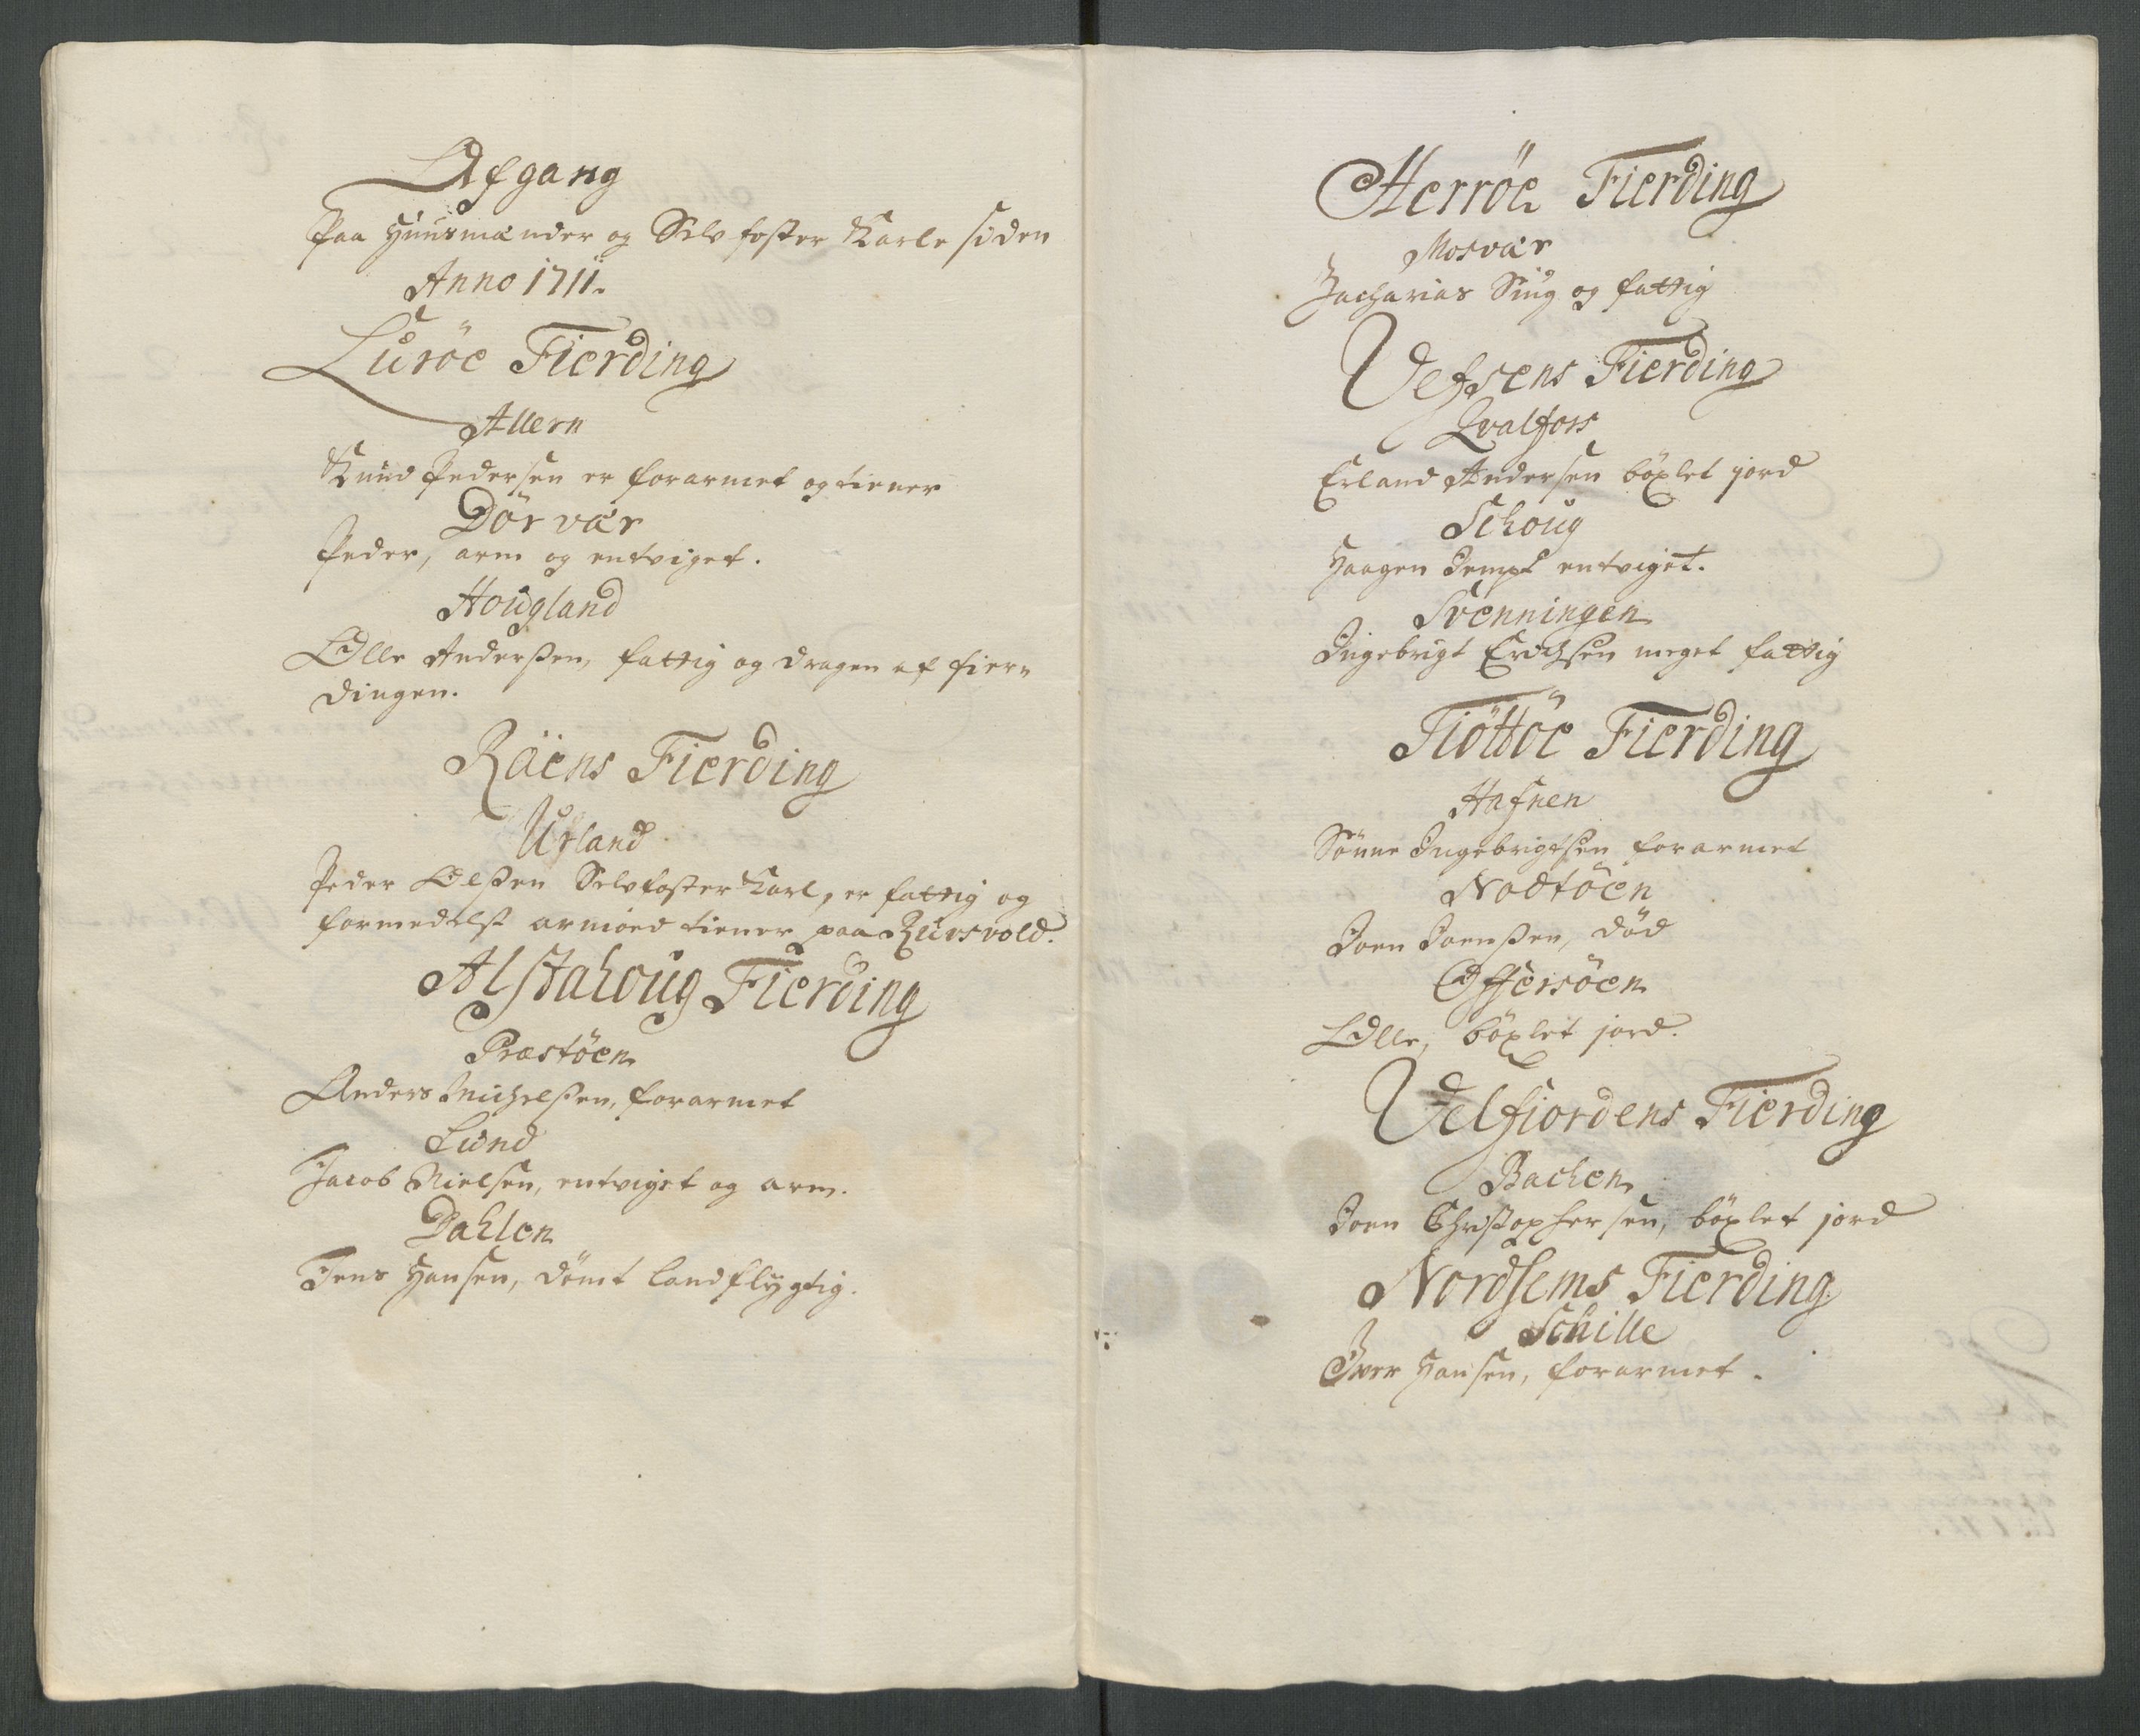 Afgang
Paa Huusmænder og Selv foster Karle siden
Anno 1711.
Lurøe Fierding
Allern
Knud Pedersen er forarmet og tiener
Dörvær
Peder, arm og entviget.
Hougland
Olle Anderßen, fattig og dragen af fier-
dingen.
Raens Fierding
Urland
Peder Olßen Selvfoster Karl, er fattig og
formedelst armoed tiener paa Rursvold.
Alstahoug Fierding
Præstöen
Anders Michelßen, forarmet
Lund
Jacob Nielsen, entviget og arm.
Dahlen
Jens Hansen, dömt landflygtig.
Herröe Fierding
Mosvær
Zacharias Siug og fattig
Vefsens Fierding
Qvalfors
Erland Andersen böxlet jord
Schoug
Haagen entviget.
Svenningen
Ingebrigt Erichsen meget fattig
Tiöttöe Fierding
Hafnen
Sönne Ingebrigtsen forarmet
Nodtöen
Joen Joenßen, död
Offersöen
Olle, böxlet jord.
Velfiordens Fierding
Bachen
Joen Christophersen, böxlet jord
Nordsems Fierding
Schille
Iver Hansen, forarmet.